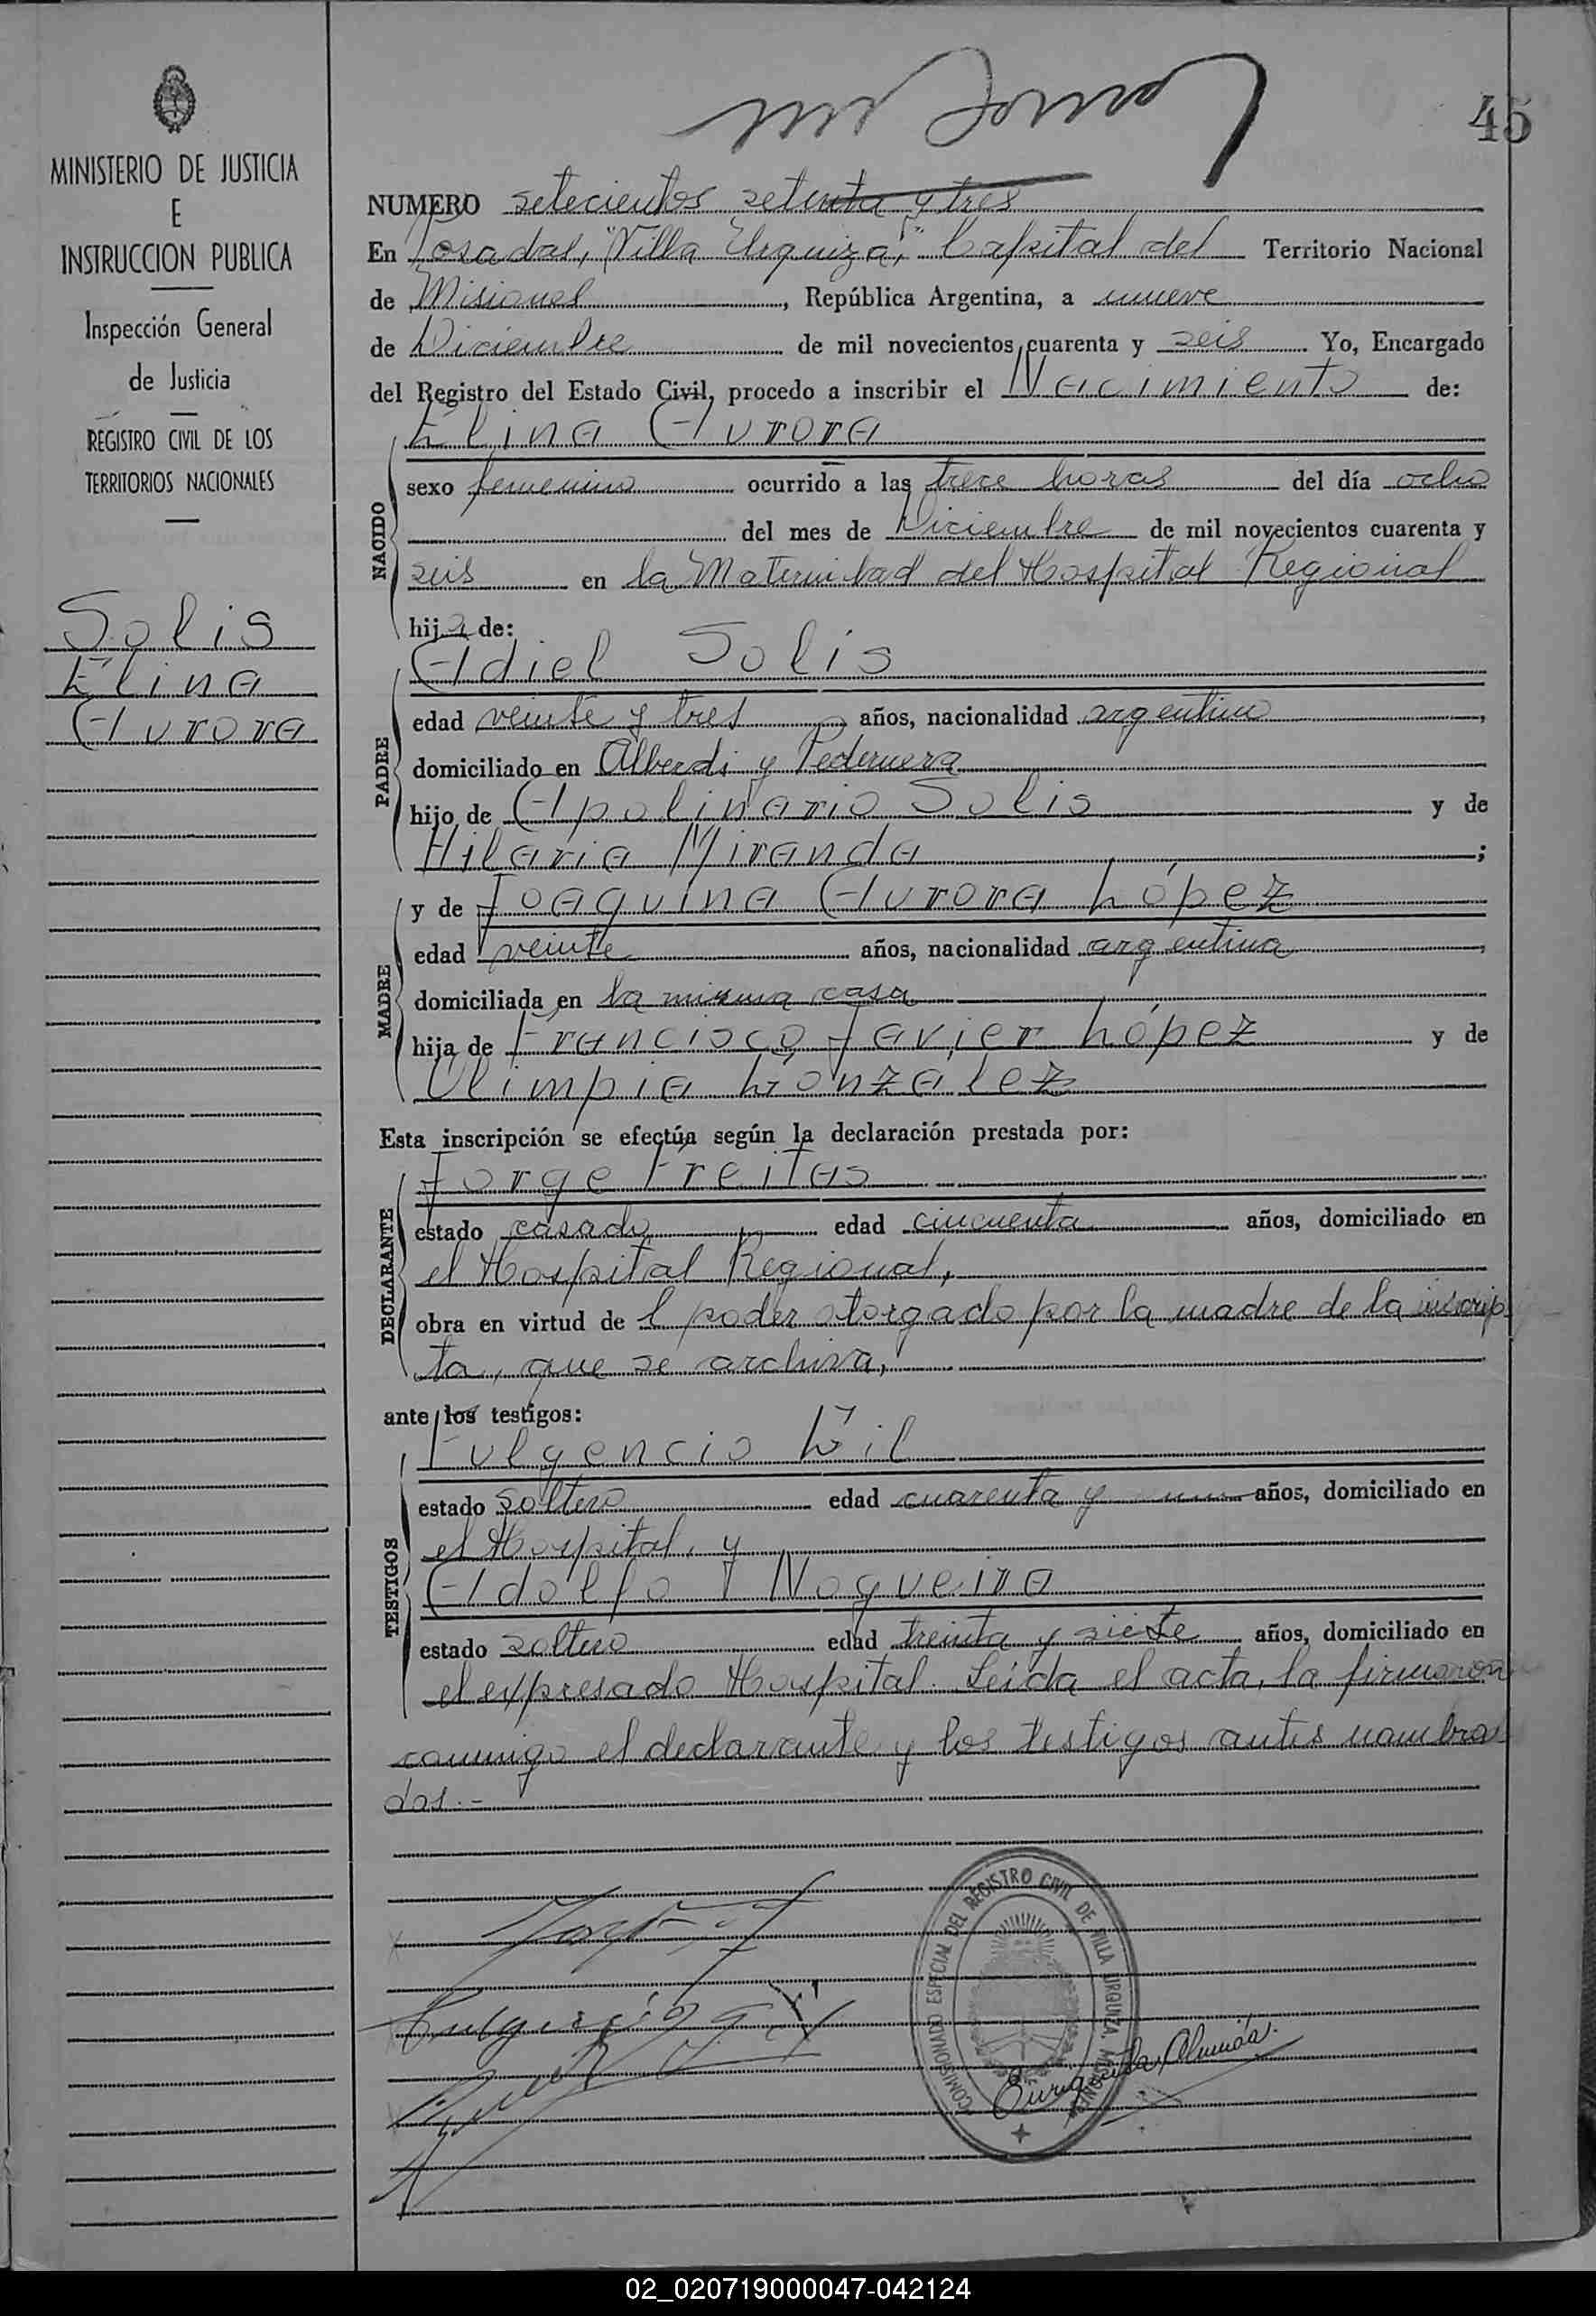 45
MINISTERIO DE JUSTICIA
E
INSTRUCCION PUBLICA
Inspección General
de Justicia
REGISTRO CIVIL DE LOS
TERRITORIOS NACIONALES
Solis
Elina
Aurora
NUMERO setecientos setenta y tres
En Posadas, "Villa Urquiza", Capital del Territorio Nacional
de Misiones, República Argentina, a nueve
de Diciembre de mil novecientos cuarenta y seis Yo, Encargado
del Registro del Estado Civil, procedo a inscribir el Nacimiento de:
NACIDO
Elina Aurora
sexo femenino ocurrido a las trece horas del día ocho
del mes de Diciembre de mil novecientos cuarenta y
seis en la Maternidad del Hospital Regional
hija de:
PADRE
Adiel Solis
edad veinte y tres años, nacionalidad argentino,
domiciliado en Alberdi y Pedernera
hijo de Apolinario Solis y de
Hilaria Miranda;
MADRE
y de Joaquina Aurora López
edad veinte años, nacionalidad argentina,
domiciliada en la misma casa
hija de Francisco Javier López y de
Olimpia González
Esta inscripción se efectúa según la declaración prestada por:
DECLARANTE
Jorge Freitas
estado casado edad cincuenta años, domiciliado en
el Hospital Regional,
obra en virtud de l poder otorgado por la madre de la inscrip
ta, que se archiva,
ante los testigos:
TESTIGOS
Fulgencio Gil
estado soltero edad cuarenta y un años, domiciliado en
el Hospital, y
Adolfo I Nogueira
estado soltero edad treinta y siete años, domiciliado en
el expresado Hospital. Leída el acta, la firmaron
conmigo el declarante y los testigos antes nombra
dos.-
COMISIONADO ESPECIAL DEL REGISTRO CIVIL DE VILLA URQUIZA, MISIONES
02_020719000047-042124